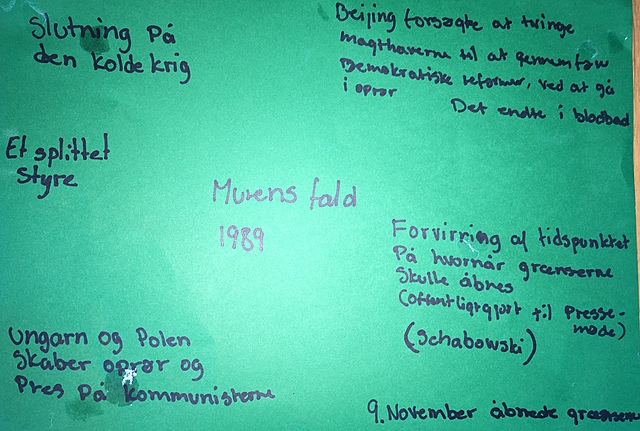 Slutning på
den kolde krig
Beijing forsøgte at tvinge
magthaverne til at gennemføre
Demokratiske reformer, ved at gå
i oprør
Det endte i blodbad
Et splittet
Styre
Murens fald
1989
Forvirring af tidspunktet
På hvornår grænserne
Skulle åbnes
(offentligtgjort til Presse-
møde)
(Schabowski)
Ungarn og Polen
Skaber oprør og
Pres på kommunisterne
9. November åbnede grænserne